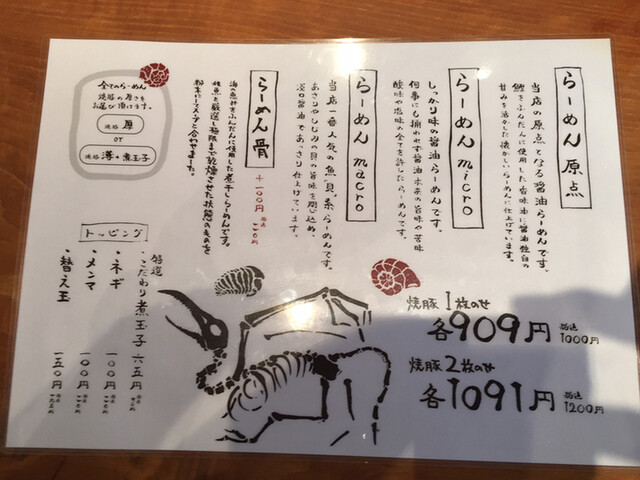 らーめん 原点
当店の原点となる醤油らーめんです。
鰹をふんだんに使用した香味油に醤油独自の
甘みを活かした懐かしいらーめんに仕上げています。
らーめん micro
しっかり味の醤油らーめんです。
何事にも捕われず醤油本来の旨味や苦味
酸味や塩味の全てを許したらーめんです。
らーめん macro
当店一番人気の魚貝系らーめんです。
あさりやしじみの貝の旨味を閉じ込め、
淡口醤油であっさり仕上げています。
らーめん 骨
+100円
海の魚介をふんだんに使用した煮干しらーめんです。
粉末にしスープと合わせました。
全てのらーめん
焼豚の厚さを
お選び頂けます。
焼豚 厚
or
焼豚 薄+煮玉子
焼豚1枚のせ
各909円 税込1000円
焼豚2枚のせ
各1091円 税込1200円
トッピング
特選
・こだわり煮玉子 六五円
・ネギ 一00円
・メンマ 一00円
・替え玉 一五0円